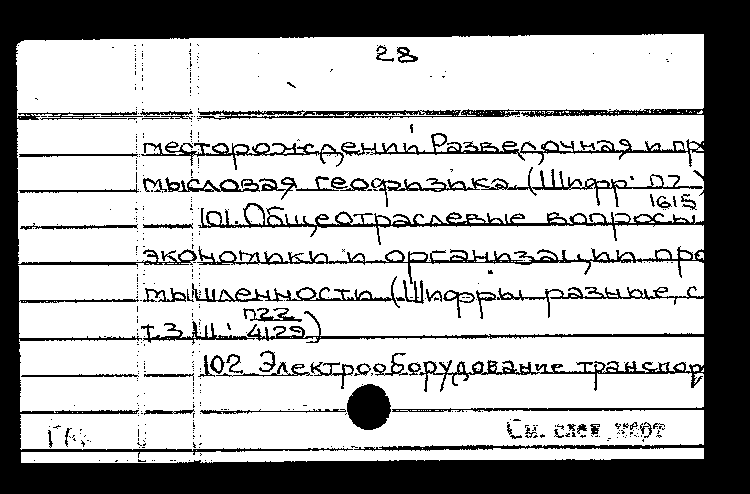 28
месторождений. Разведочная и про
мысловая геофизика. (Шифр: П7
1615)
101. Общеотраслевые вопросы
экономики и организации про
мышленности (Шифры разные, с
т.3 Ш.: П22
4129)
102. Электрооборудование транспор
См. след. карт